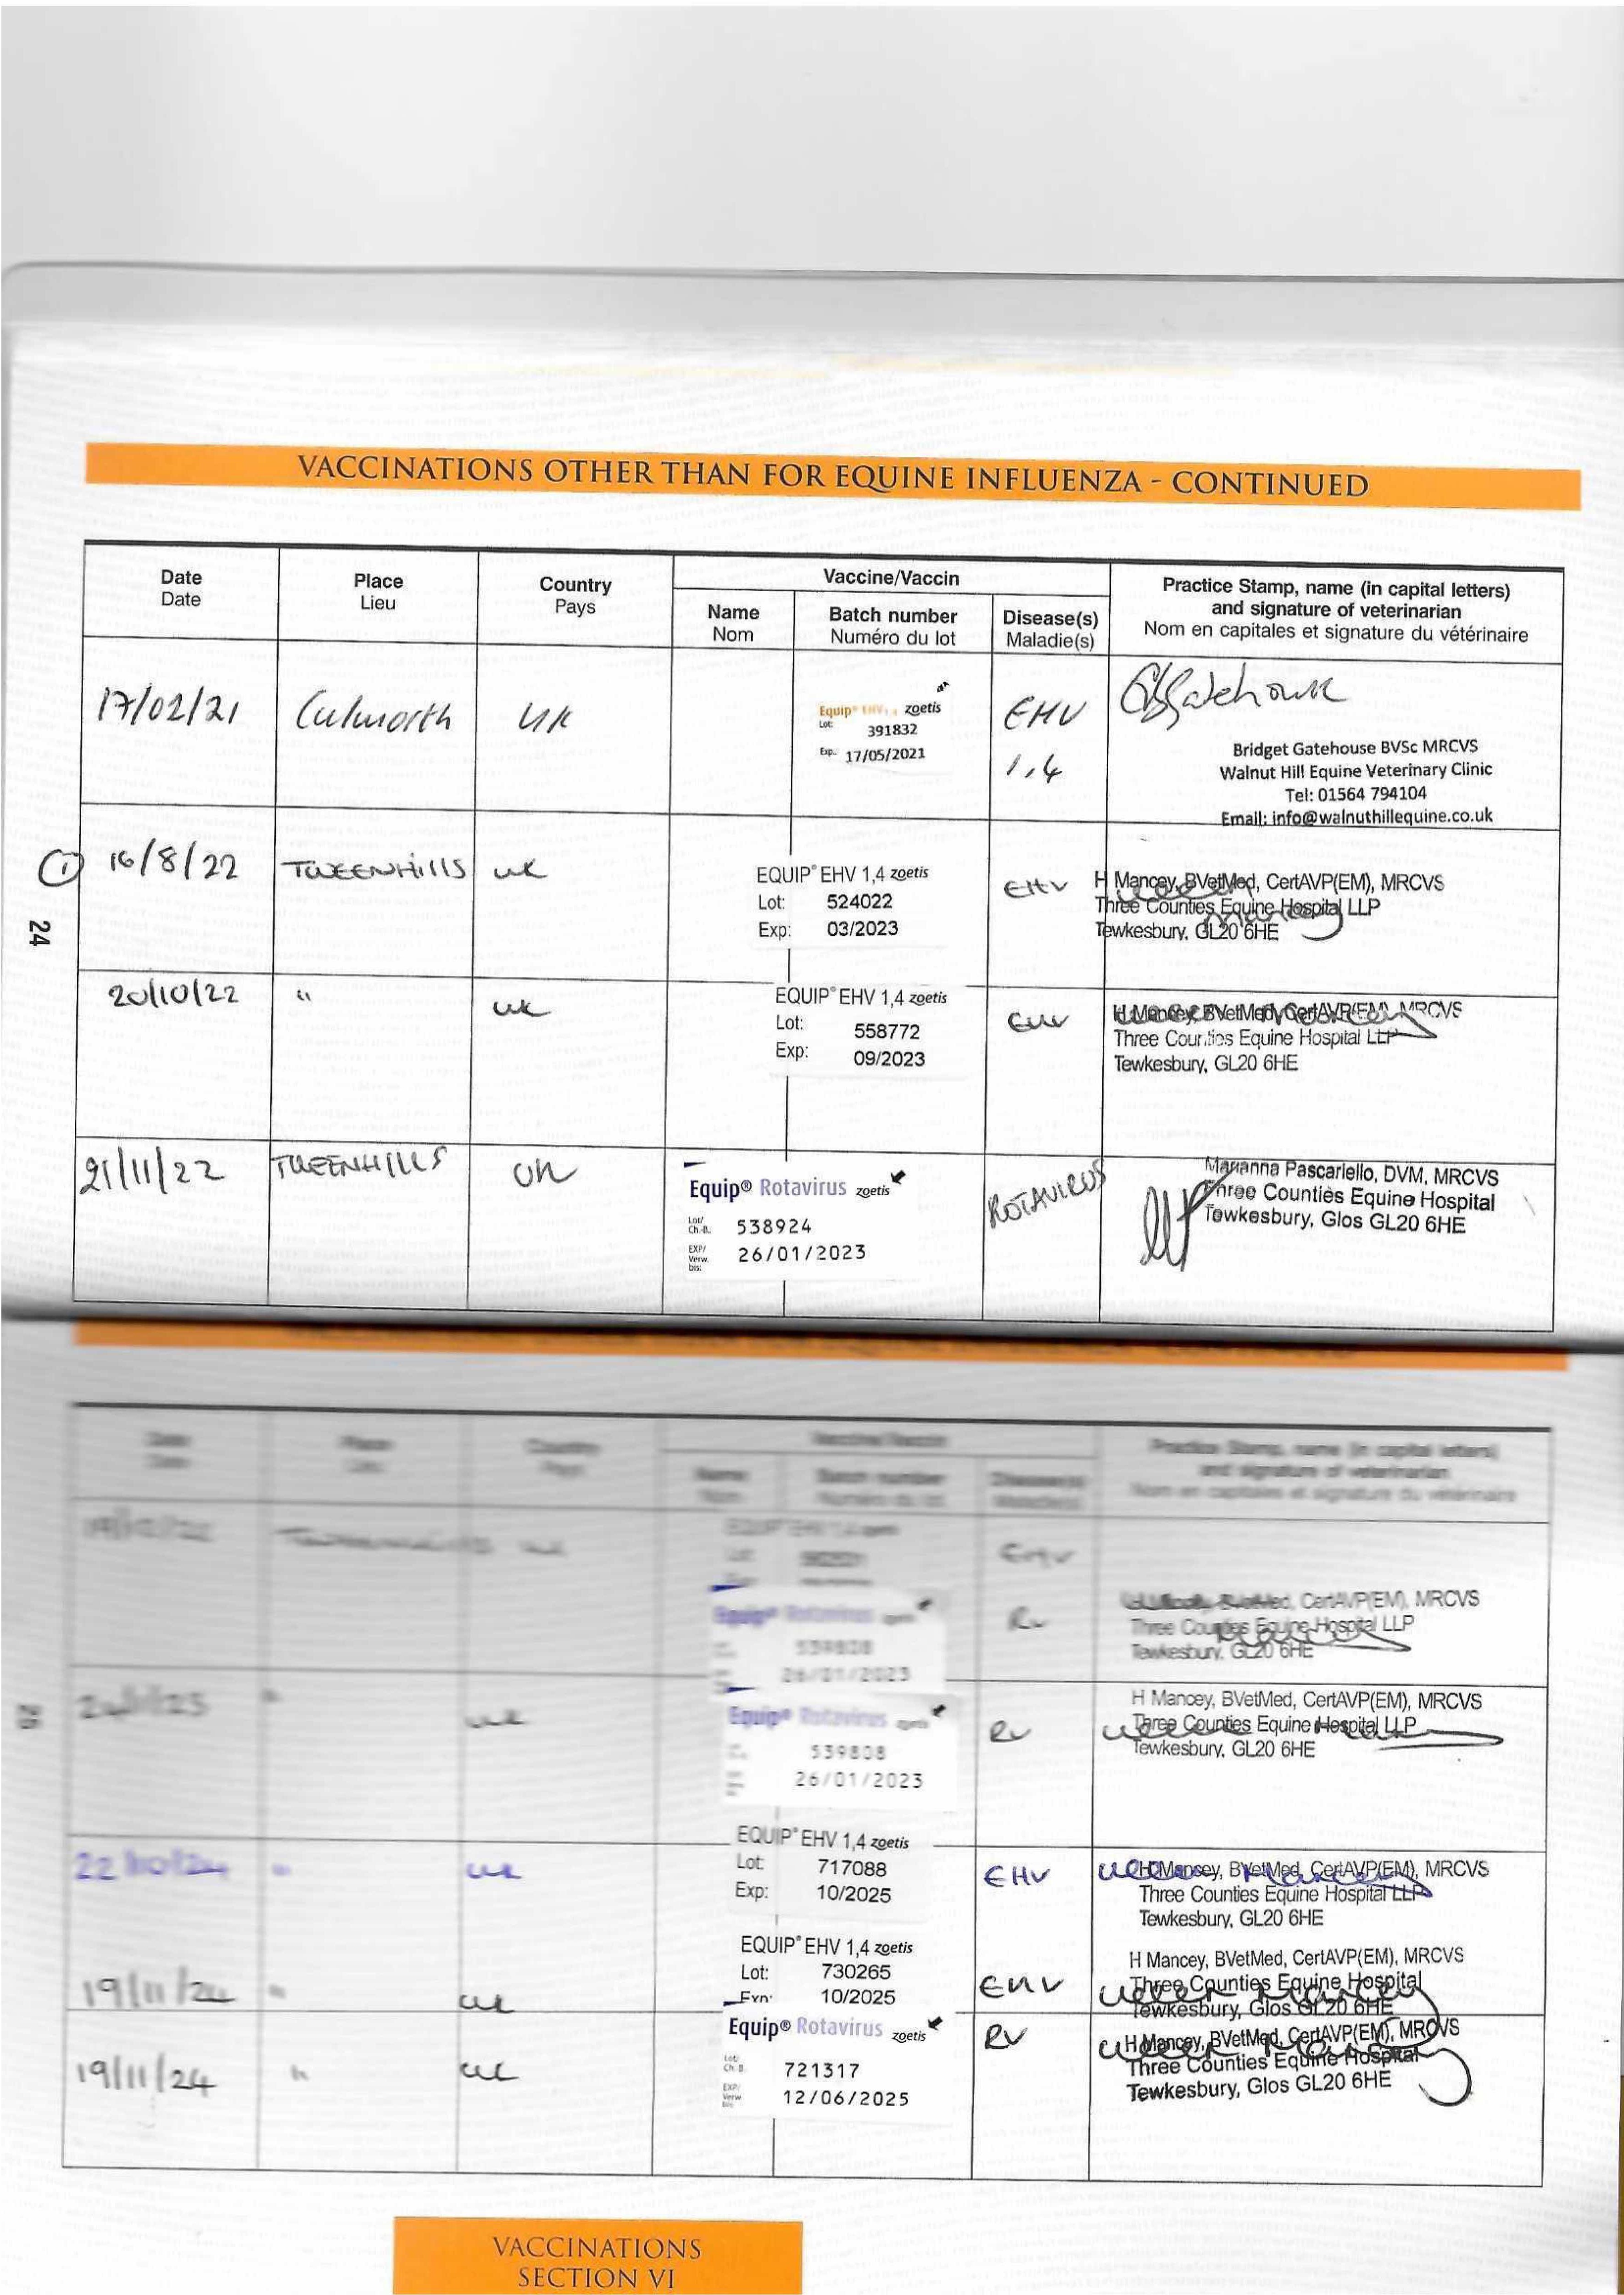 VACCINATIONS OTHER THAN FOR EQUINE INFLUENZA - CONTINUED
Date Place Country Vaccine/Vaccin Practice Stamp, name (in capital letters)
Date Lieu Pays Name Batch number Disease(s) and signature of veterinarian
Nom Numéro du lot Maladie(s) Nom en capitales et signature du vétérinaire
17/02/21 Culworth UK Equip EHV 1,4 zoetis EHV
Lot: 391832
Exp. 17/05/2021 1,4
Bridget Gatehouse BVSc MRCVS
Walnut Hill Equine Veterinary Clinic
Tel: 01564 794104
Email: info@walnuthillequine.co.uk
1 16/8/22 TWEENHIllS UK EQUIP® EHV 1,4 zoetis EHV H Mancey, BVetMed, CertAVP(EM), MRCVS
Lot: 524022 Three Counties Equine Hospital LLP
Exp: 03/2023 Tewkesbury. GL20 6HE
24
20/10/22 " UK EQUIP® EHV 1,4 zoetis EHV H Mancey, BVetMed, CertAVP(EM), MRCVS
Lot: 558772 Three Counties Equine Hospital LLP
Exp: 09/2023 Tewkesbury, GL20 6HE
21/11/22 TWEENHILLS UK Equip® Rotavirus zoetis ROTAVIRUS Marianna Pascariello, DVM, MRCVS
Lot/ Ch.-B. 538924 Three Counties Equine Hospital
EXP/ Verw. bis: 26/01/2023 Tewkesbury, Glos GL20 6HE
Date Place Country Vaccine/Vaccin Practice Stamp, name (in capital letters)
Date Lieu Pays Name Batch number Disease(s) and signature of veterinarian
Nom Numéro du lot Maladie(s) Nom en capitales et signature du vétérinaire
UK EQUIP® EHV 1,4 zoetis EHV
Lot:
Equip® Rotavirus zoetis RV CertAVP(EM), MRCVS
539808 Three Counties Equine Hospital LLP
26/01/2023 Tewkesbury. GL20 6HE
" UK Equip® Rotavirus zoetis RV H Mancey, BVetMed, CertAVP(EM), MRCVS
539808 Three Counties Equine Hospital LLP
26/01/2023 Tewkesbury. GL20 6HE
22/10/24 " UK EQUIP® EHV 1,4 zoetis EHV H Mancey, BVetMed, CertAVP(EM), MRCVS
Lot: 717088 Three Counties Equine Hospital LLP
Exp: 10/2025 Tewkesbury, GL20 6HE
19/11/24 " UK EQUIP® EHV 1,4 zoetis EHV H Mancey, BVetMed, CertAVP(EM), MRCVS
Lot: 730265 Three Counties Equine Hospital
Exp: 10/2025 Tewkesbury, Glos GL20 6HE
19/11/24 " UK Equip® Rotavirus zoetis RV H Mancey, BVetMed, CertAVP(EM), MRCVS
Lot/ Ch.-B. 721317 Three Counties Equine Hospital
EXP/ Verw. bis: 12/06/2025 Tewkesbury, Glos GL20 6HE
VACCINATIONS
SECTION VI